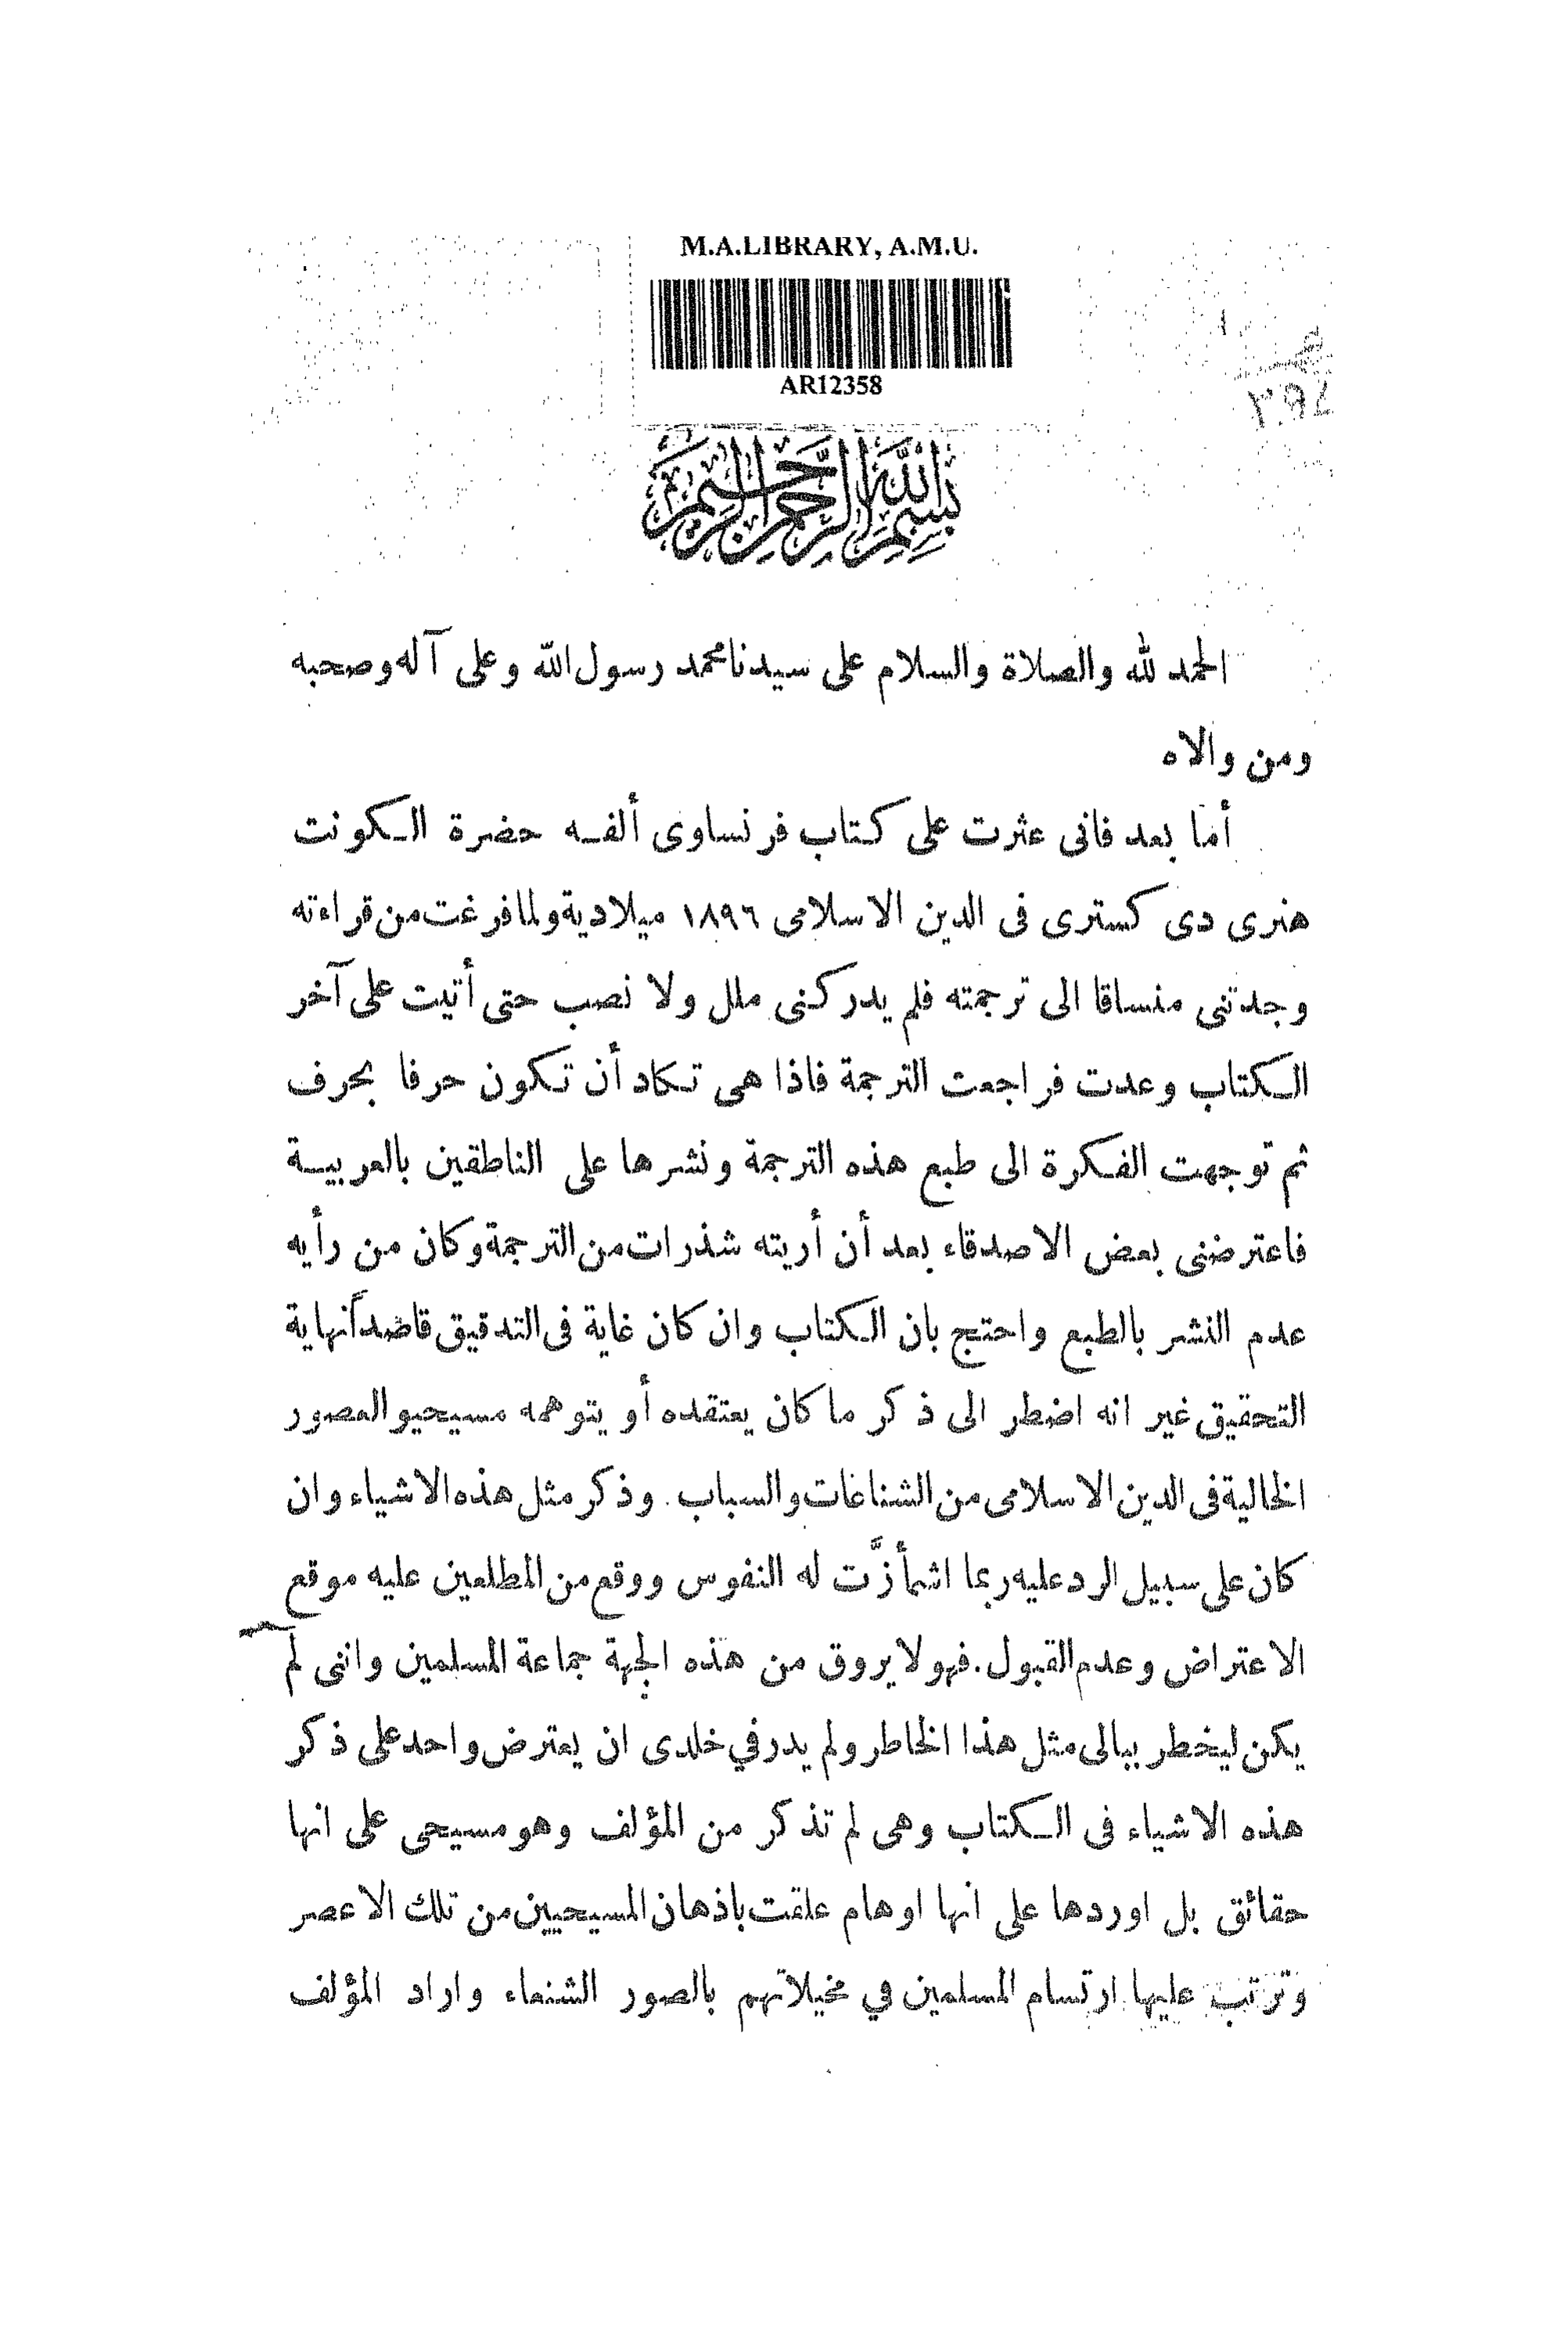 M.A.LIBRARY, A.M.U.
AR12358
بسم الله الرحمن الرحيم
الحمد لله والصلاة والسلام على سيدنا محمد رسول الله وعلى آله وصحبه
ومن والاه
أما بعد فانى عثرت على كتاب فرنساوى ألفه حضرة الكونت
هنرى دى كسترى فى الدين الاسلامى ١٨٩٦ ميلادية ولما فرغت من قراءته
وجدتنى منساقا الى ترجمته فلم يدركنى ملل ولا نصب حتى أتيت على آخر
الكتاب وعدت فراجعت الترجمة فاذا هى تكاد أن تكون حرفا بحرف
ثم توجهت الفكرة الى طبع هذه الترجمة ونشرها على الناطقين بالعربية
فاعترضنى بعض الاصدقاء بعد أن أريته شذرات من الترجمة وكان من رأيه
عدم النشر بالطبع واحتج بان الكتاب وان كان غاية فى التدقيق قاصداً نهاية
التحقيق غير انه اضطر الى ذكر ما كان يعتقده أو يتوهمه مسيحيو العصور
الخالية فى الدين الاسلامى من الشناعات والسباب . وذكر مثل هذه الاشياء وان
كان على سبيل الرد عليه ربما اشمأزَّت له النفوس ووقع من المطلعين عليه موقع
الاعتراض وعدم القبول . فهو لا يروق من هذه الجهة جماعة المسلمين واننى لم
يكن ليخطر ببالى مثل هذا الخاطر ولم يدر في خلدى ان يعترض واحد على ذكر
هذه الاشياء فى الكتاب وهى لم تذكر من المؤلف وهو مسيحى على انها
حقائق بل اوردها على انها اوهام علقت باذهان المسيحيين من تلك الاعصر
وترتب عليها ارتسام المسلمين في مخيلاتهم بالصور الشنعاء واراد المؤلف